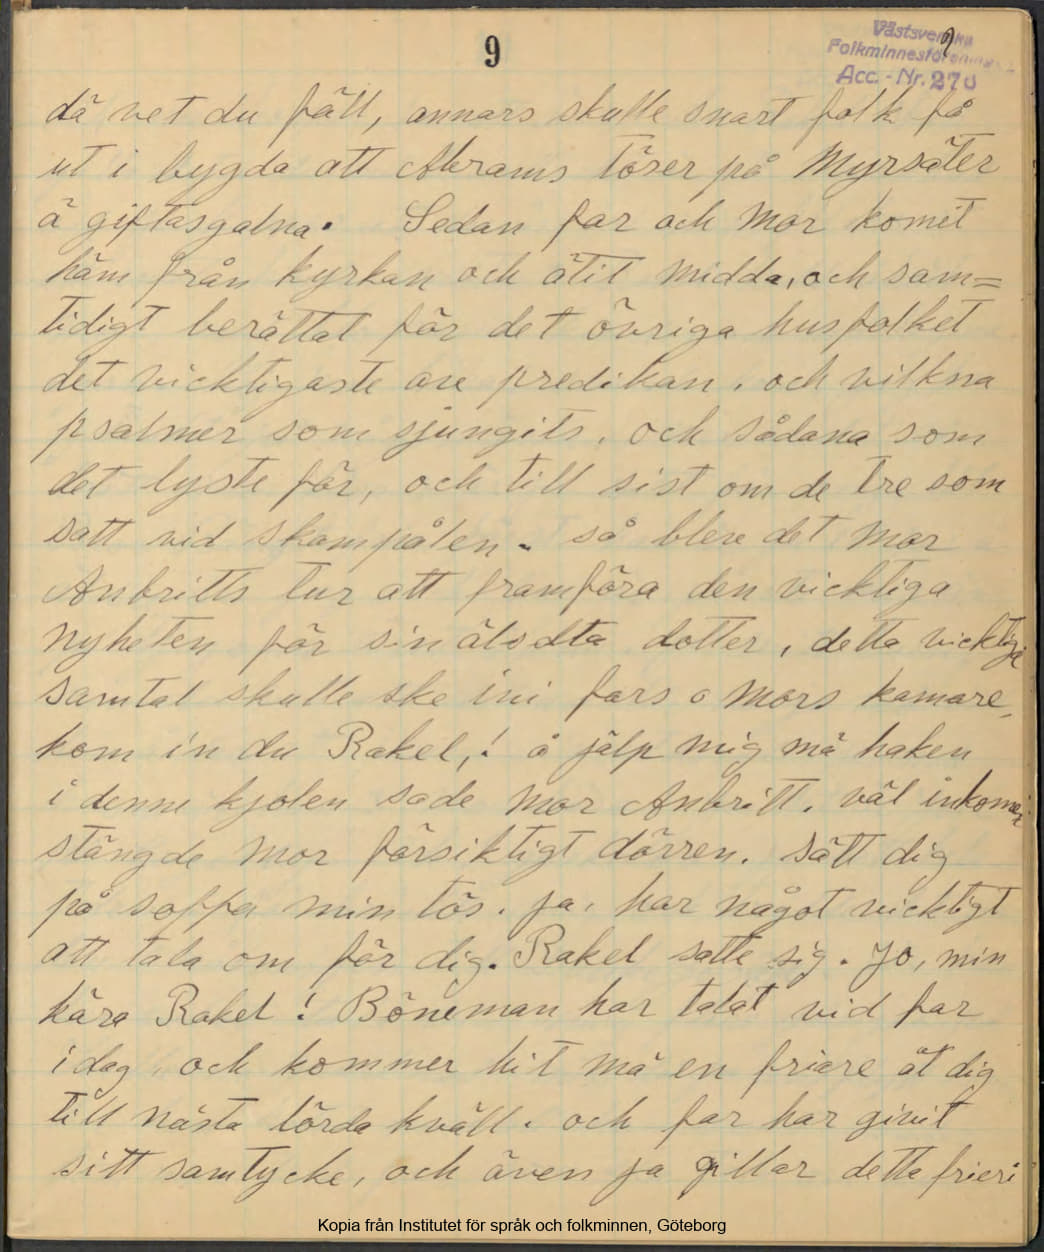 9
Västsvenska
Folkminnesföreningen
Acc. - Nr. 270
dä vet du fäll, annars skulle snart folk få
ut i bygda att Abrams töser på Myrsäter
ä giftasgalna. Sedan far och mor komit
häm från kyrkan och ätit midda, och sam=
tidigt berättat för det övriga husfolket
det vicktigaste ave predikan. och vilkna
psalmer som sjungits. och sådana som
det lyste för, och till sist om de tre som
satt vid skampålen. så bleve det mor
Anbritts tur att framföra den vicktiga
nyheten för sin älsdta dotter, detta vicktiga
samtal skulle ske ini fars o mors kamare,
kom in du Rakel,! å jälp mig mä haken
i denne kjolen sade mor Anbritt. väl inkommen
stängde mor försiktigt dörren. sätt dig
på soffa min tös. ja, har något vicktigt
att tala om för dig. Rakel satte sig. Jo, min
kära Rakel! Böneman har talat vid far
idag och kommer hit mä en friare åt dig
till nästa lörda kväll. och far har givit
sitt samtycke, och även ja gillar detta frieri
Kopia från Institutet för språk och folkminnen, Göteborg